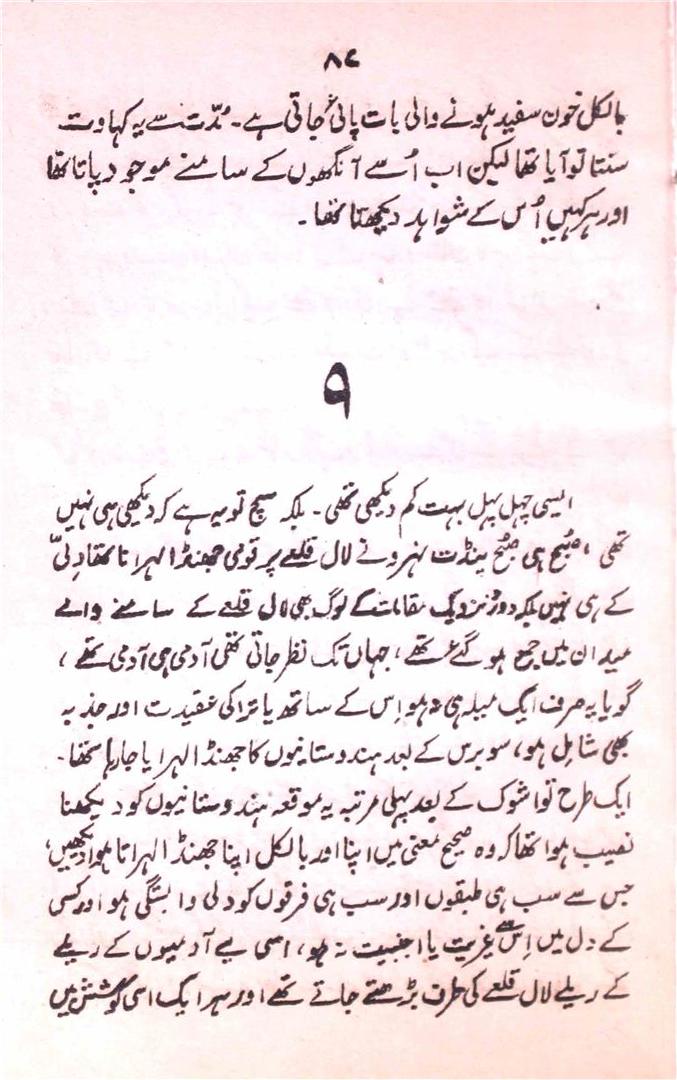 ۸۷
بالکل خون سفید ہونے والی بات پائی جاتی ہے۔ مُدّت سے یہ کہاوت
سنتا تو آیا تھا لیکن اب اُسے آنکھوں کے سامنے موجود پاتا تھا
اور ہر کہیں اُس کے شواہد دیکھتا تھا۔
۹
ایسی چہل پہل بہت کم دیکھی تھی۔ بلکہ سچ تو یہ ہے کہ دیکھی ہی نہیں
تھی، صُبح ہی صُبح پنڈت نہرو نے لال قلعے پر قومی جھنڈا لہرانا تھا دِلّی
کے ہی نہیں بلکہ دور نزدیک مقامات کے لوگ بھی لال قلعے کے سامنے والے
میدان میں جمع ہو گئے تھے، جہاں تک نظر جاتی تھی آدمی ہی آدمی تھے،
گویا یہ صرف ایک میلہ ہی نہ ہو اِس کے ساتھ یاترا کی عقیدت اور جذبہ
بھی شامل ہو، سو برس کے بعد ہندوستانیوں کا جھنڈا لہرایا جا رہا تھا۔
ایک طرح تو اشوک کے بعد پہلی مرتبہ یہ موقعہ ہندوستانیوں کو دیکھنا
نصیب ہوا تھا کہ وہ صحیح معنی میں اپنا اور بالکل اپنا جھنڈا لہراتا ہوا دیکھیں،
جس سے سب ہی طبقوں اور سب ہی فرقوں کو دلی وابستگی ہو اور کسی
کے دل میں اِس سے غیریت یا اجنبیت نہ ہو، اسی لیے آدمیوں کے ریلے
کے ریلے لال قلعے کی طرف بڑھتے جاتے تھے اور ہر ایک اسی کوشش میں